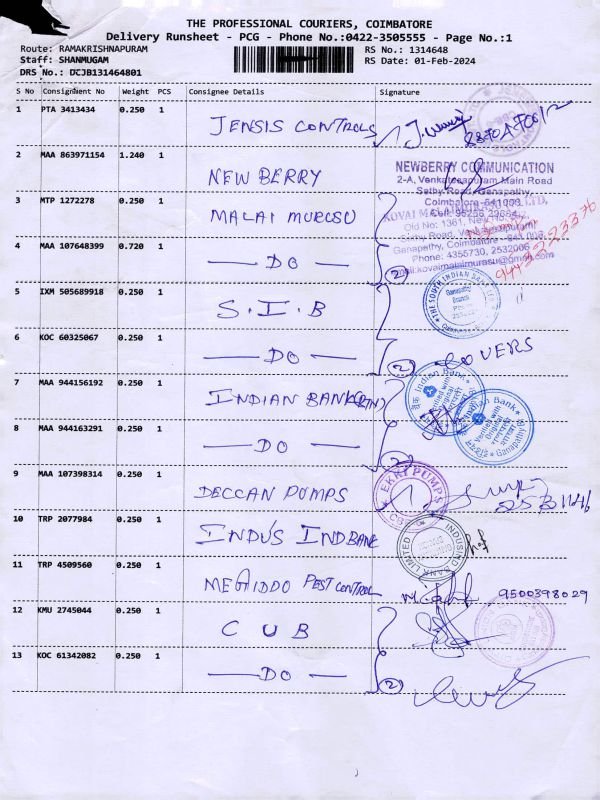 THE PROFESSIONAL COURIERS, COIMBATORE
Delivery Runsheet - PCG - Phone No.:0422-3505555 - Page No.:1
Route: RAMAKRISHNAPURAM RS No.: 1314648
Staff: SHANMUGAM RS Date: 01-Feb-2024
DRS No.: DCJB131464801
S No Consignment No Weight PCS Consignee Details Signature
1 PTA 3413434 0.250 1 JENSIS CONTROLS
2 MAA 863971154 1.240 1 NEW BERRY
NEWBERRY COMMUNICATION
2-A, Venkatesapuram Main Road
Sethy Road, Ganapathy,
Coimbatore-641006.
3 MTP 1272278 0.250 1 MALAI MURUSU
Old No: 1361, New No:
Ganapathy, Coimbatore - 641 006.
Phone: 4355730, 2532006
Email:kovaimalaimurasu@gmail.com
9443222337
4 MAA 107648399 0.720 1 — DO — 2
5 IXM 505689918 0.250 1 S.I.B
THE SOUTH INDIAN BANK LTD
Ganapathy
Branch
6 KOC 60325067 0.250 1 — DO — 2 COVERS
7 MAA 944156192 0.250 1 INDIAN BANK(RTN)
Indian Bank
Verified with
Original
8 MAA 944163291 0.250 1 — DO — 2
Indian Bank
Verified with
Original
Ganapathy
9 MAA 107398314 0.250 1 DECCAN PUMPS
EKKI PUMPS
10 TRP 2077984 0.250 1 INDUS INDBANK
INDUSIND BANK LIMITED
11 TRP 4509560 0.250 1 MEGIDDO PEST CONTROL 9500398029
12 KMU 2745044 0.250 1 C U B
13 KOC 61342082 0.250 1 — DO — 2